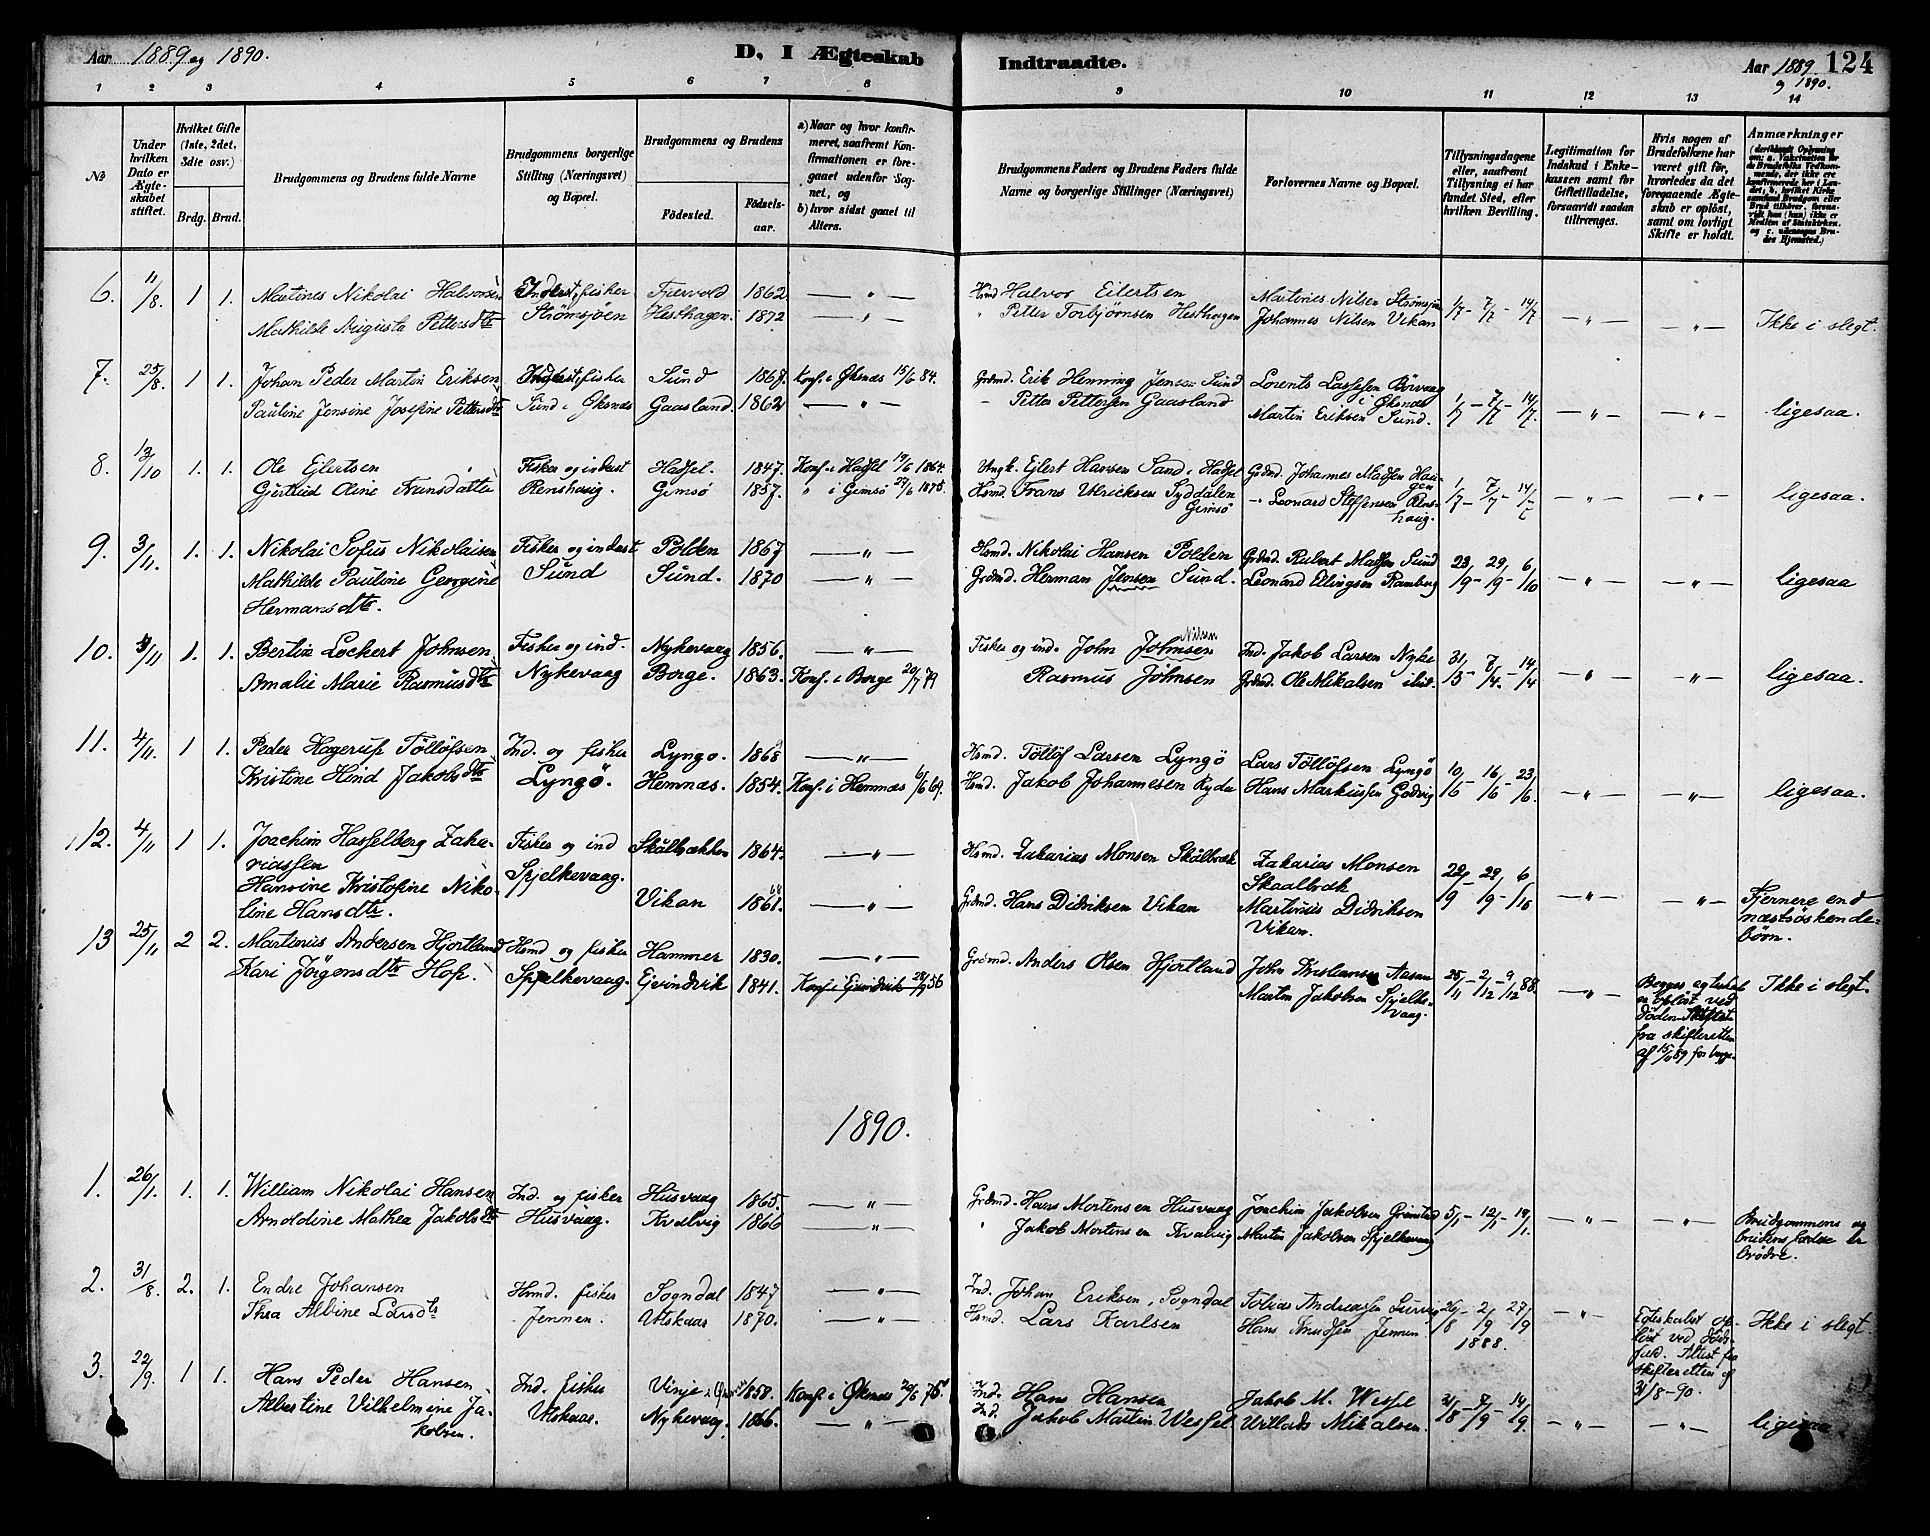 Aar 1889 og 1890.
D. I Ægteskab Indtraadte.
Aar 1889 og 1890. 124
1 2 3 4 5 6 7 8 9 10 11 12 13 14
No
Under hvilken Dato er Ægteskabet stiftet.
Hvilket Gifte (1ste, 2det, 3die osv.)
Brdg. Brud.
Brudgommens og Brudens fulde Navne
Brudgommens borgerlige Stilling (Næringsvei) og Bopæl.
Brudgommens og Brudens
Födested.
Födselsaar.
a) Naar og hvor konfirmeret, saafremt Konfirmationen er foregaaet udenfor Sognet, og
b) hvor sidst gaaet til Alters.
Brudgommens Faders og Brudens Faders fulde Navne og borgerlige Stillinger (Næringsvei)
Forlovernes Navne og Bopæl.
Tillysningsdagene eller, saafremt Tillysning ei har fundet Sted, efter hvilken Bevilling.
Legitimation for Indskud i Enkekassen samt for Giftetilladelse, forsaavidt saadan tiltrænges.
Hvis nogen af Brudefolkene har været gift för, hvorledes da det foregaaende Ægteskab er oplöst, samt om lovligt Skifte er holdt.
Anmærkninger
6. 11/8. 1 1. Martines Nikolai Halvorsen Inderst, fisker Fjervold 1862 — " — Hsmd Halvor Eilertsen Martines Nilsen Strømsjøen 1/7 - 7/7 - 14/7
Mathilde Augusta Pettersdtr Strømsjøen Hesthagen 1872 — " — " Petter Torbjörnsen Hesthagen Johannes Nilsen Vikan — " — — " — Ikke i slegt.
7. 25/8. 1 1. Johan Peder Martin Eriksen Inderst, fisker Sund 1867. Konf. i Øksnæs 15/6 84. Grdmd. Erik Henning Jensen Sund Lorents Lassesen Börvaag i Øksnæs
Pauline Jensine Josefine Pettersdtr Sund i Øksnæs Gaasland 1862 — " — Petter Pettersen Gaasland Martin Eriksen Sund. 1/7 - 7/7 - 14/7 — " — — " — ligesaa.
8. 13/10 1. 1. Ole Ejlertsen Fisker og inderst Hadsel. 1847. Konf. i Hadsel 19/6 1864. Ungk. Ejlert Hansen Sand i Hadsel Grdmd. Johannes Madsen Haugen
Gjertrud Oline Fransdatter Renshaug. Gimsø 1857. " i Gimsø 27/6 1875. Hsmd. Frans Ulriksen Syddalen Gimsø Leonard Steffensen Renshaug. 1/7 - 7/7 - 14/7 — " — — " — ligesaa.
9. 3/11. 1. 1. Nikolai Sofus Nikolaisen Fisker og inderst Polden 1867 — " — Hsmd. Nikolai Hansen Polden Grdmd. Rubert Madsen Sund 23/9 - 29/9 - 6/10
Mathilde Pauline Georgine Sund Sund. 1870 — " — Grdmd. Herman Jensen Sund. Leonard Ellingsen Ramberg — " — — " — ligesaa
Hermansdtr.
10. 3/11 1. 1. Bertin Lockert Johnsen Fisker og ind. Nykevaag 1856. — " — Fisker og ind. John Johnsen Nilsen Ind. Jakob Larsen Nyke 31/3 - 7/4. - 14/4
Amalie Marie Rasmusdtr Nykevaag Borge. 1863. Konf. i Borge 20/7 79 Rasmus Johnsen Grdmd. Ole Mikalsen ibid. — " — — " — ligesaa.
11. 4/11. 1 1. Peder Hagerup Töllöfsen Ind. og fisker Lyngø. 1868 — " — Hsmd. Töllöf Larsen Lyngö Lars Töllöfsen Lyngö 10/6 - 16/6 - 23/6.
Kristine Hind Jakobsdtr Lyngö. Hemnæs. 1854. Konf. i Hemnæs 6/6 69. Hsmd. Jakob Johannesen Hans Markussen Godvig — " — — " — ligesaa.
12. 4/11 1 1. Joachim Hasselberg Zaka- Fisker og ind Skålbrækken 1864. — " — Hsmd. Zakarias Monsen Skålbræk Zakarias Monsen 22/9 - 29/9 - 6/10
riassen Spjelkevaag. Skaalbræk
Hansine Kristofine Niko- Vikan 1861. — " — Grdmd. Hans Didriksen Vikan Martinus Didriksen — " — — " — Fjernere end
line Hansdtr. Vikan. næstsöskende-
börn.
13 25/11 2 2. Martinus Andersen Hjortland Hsmd og fisker Hammer 1830. — " — Grdmd. Anders Olsen Hjortland John Kristiansen Aasan 25/11 - 2/12 - 9/12 88.
Kari Jörgensdtr Hop. Spjelkevaag. Evindvik 1841. Konf. i Evindvik 28/9 56 Martin Jakobsen Spjelkevaag. — " — Begges egteskab Ikke i slegt.
er oplöst ved
döden. Skifteat.
fra skifteretten
af 15/ 89 for begge.
1890.
1. 26/1. 1. 1. William Nikolai Hansen Ind. og fisker Husvaag 1865. — " — Grdmd. Hans Mortensen Husvaag Joachim Jakobsen Grimstad 5/1 - 12/1 - 19/1.
Arnoldine Mathea Jakobsdtr Husvaag. Kvalvig 1866 — " — " Jakob Mortensen Kvalvig Martin Jakobsen Spjelkevaag — " — — " — Brudgommens og
brudens fædre er
brödre.
2. 31/8. 2. 1. Endre Johansen Hsmd. fisker Sogndal 1847 — " — Ind. Johan Eriksen, Sogndal Tobias Andreassen 26/8 - 2/9 - 27/9
Thea Albine Larsdtr Jennen. Utskaar 1870. — " — Hsmd. Lars Karlsen Hans Knudsen Jennen 1888. — " — Egteskabet op- Ikke i slegt.
löst ved döds-
fald. Attest fra
skifteretten af
31/8-90.
3. 22/9. 1 1 Hans Peder Hansen Ind. fisker Vinje i 1858. Konf. i Øksnæs 20/6 75. Ind. Hans Hansen Jakob M. Wessel 31/8 - 7/9 - 14/9
Albertine Vilhelmine Ja- Utskaar. Nykevaag. 1866. — " — Ind. Jakob Martin Wessel Willads Mikalsen. — " — — " — ligesaa
kobsen.